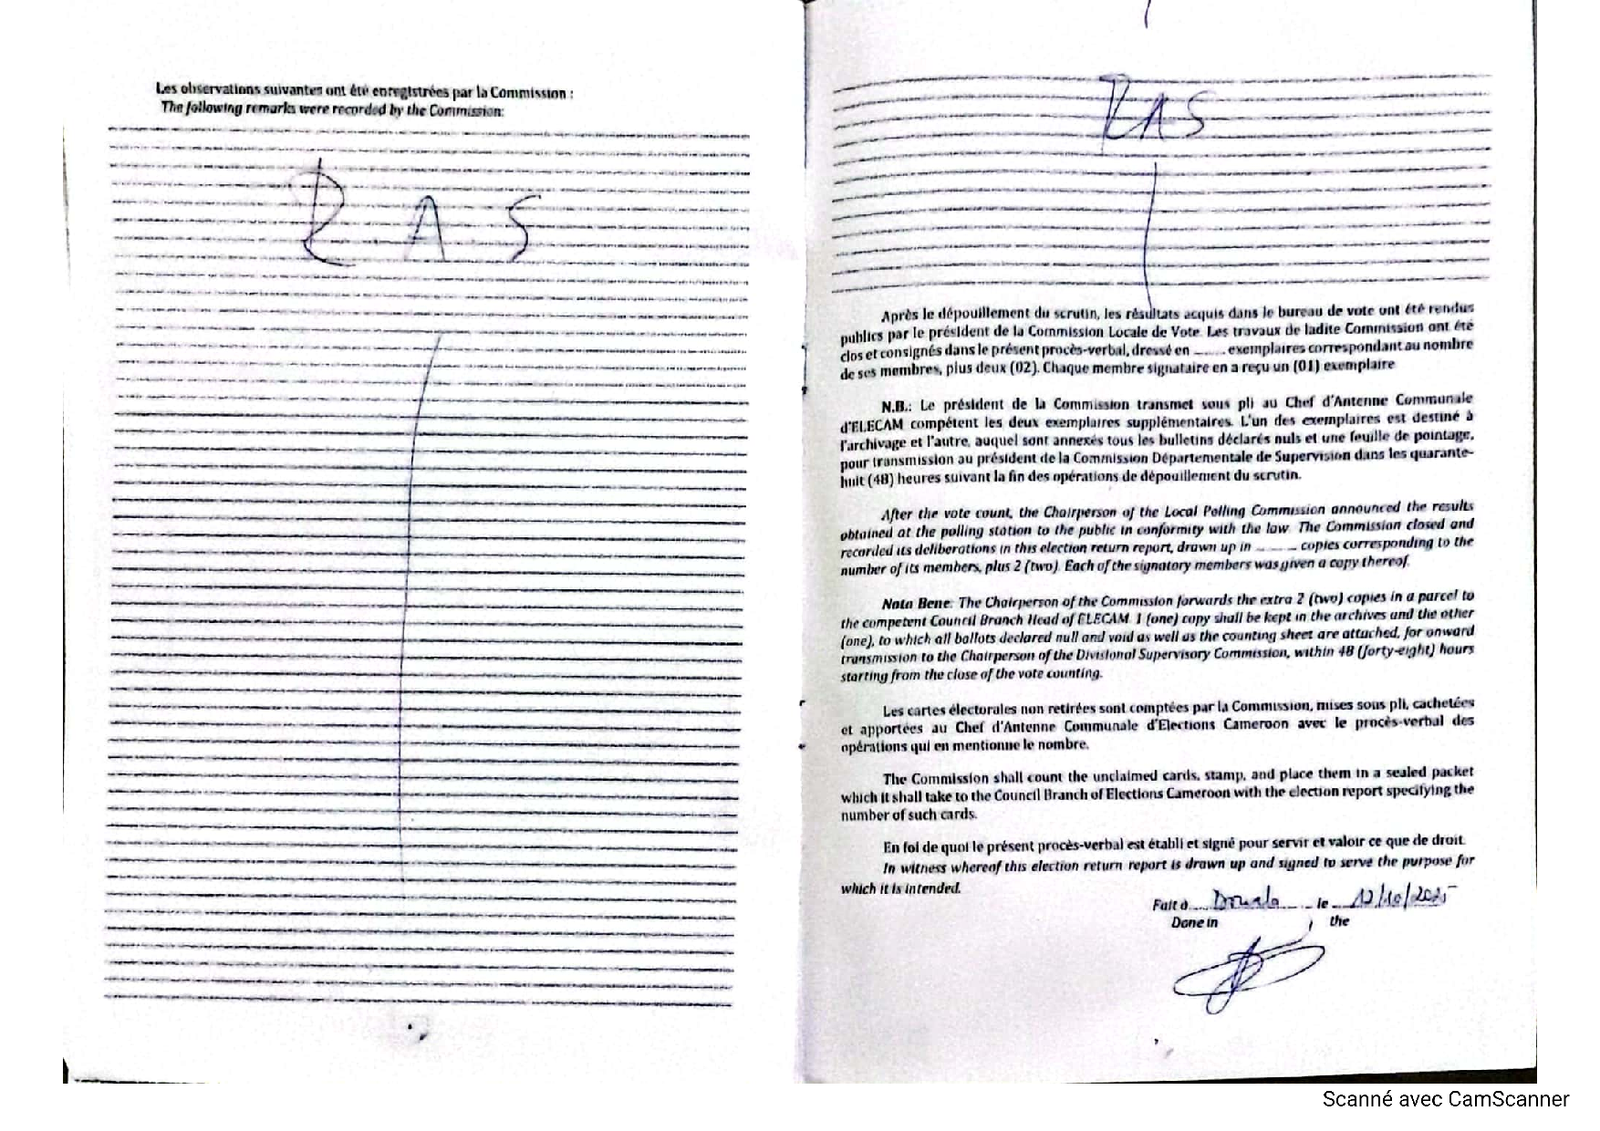 Les observations suivantes ont été enregistrées par la Commission :
The following remarks were recorded by the Commission:
R A S
RAS
Après le dépouillement du scrutin, les résultats acquis dans le bureau de vote ont été rendus
publics par le président de la Commission Locale de Vote. Les travaux de ladite Commission ont été
clos et consignés dans le présent procès-verbal, dressé en ........ exemplaires correspondant au nombre
de ses membres, plus deux (02). Chaque membre signataire en a reçu un (01) exemplaire
N.B.: Le président de la Commission transmet sous pli au Chef d'Antenne Communale
d'ELECAM compétent les deux exemplaires supplémentaires. L'un des exemplaires est destiné à
l'archivage et l'autre, auquel sont annexés tous les bulletins déclarés nuls et une feuille de pointage,
pour transmission au président de la Commission Départementale de Supervision dans les quarante-
huit (48) heures suivant la fin des opérations de dépouillement du scrutin.
After the vote count, the Chairperson of the Local Polling Commission announced the results
obtained at the polling station to the public in conformity with the law. The Commission closed and
recorded its deliberations in this election return report, drawn up in ........ copies corresponding to the
number of its members, plus 2 (two). Each of the signatory members was given a copy thereof.
Nota Bene: The Chairperson of the Commission forwards the extra 2 (two) copies in a parcel to
the competent Council Branch Head of ELECAM. 1 (one) copy shall be kept in the archives and the other
(one), to which all ballots declared null and void as well as the counting sheet are attached, for onward
transmission to the Chairperson of the Divisional Supervisory Commission, within 48 (forty-eight) hours
starting from the close of the vote counting.
Les cartes électorales non retirées sont comptées par la Commission, mises sous pli, cachetées
et apportées au Chef d'Antenne Communale d'Elections Cameroon avec le procès-verbal des
opérations qui en mentionne le nombre.
The Commission shall count the unclaimed cards, stamp, and place them in a sealed packet
which it shall take to the Council Branch of Elections Cameroon with the election report specifying the
number of such cards.
En foi de quoi le présent procès-verbal est établi et signé pour servir et valoir ce que de droit.
In witness whereof this election return report is drawn up and signed to serve the purpose for
which it is intended.
Fait à Douala le 12/10/2025
Done in the
Scanné avec CamScanner